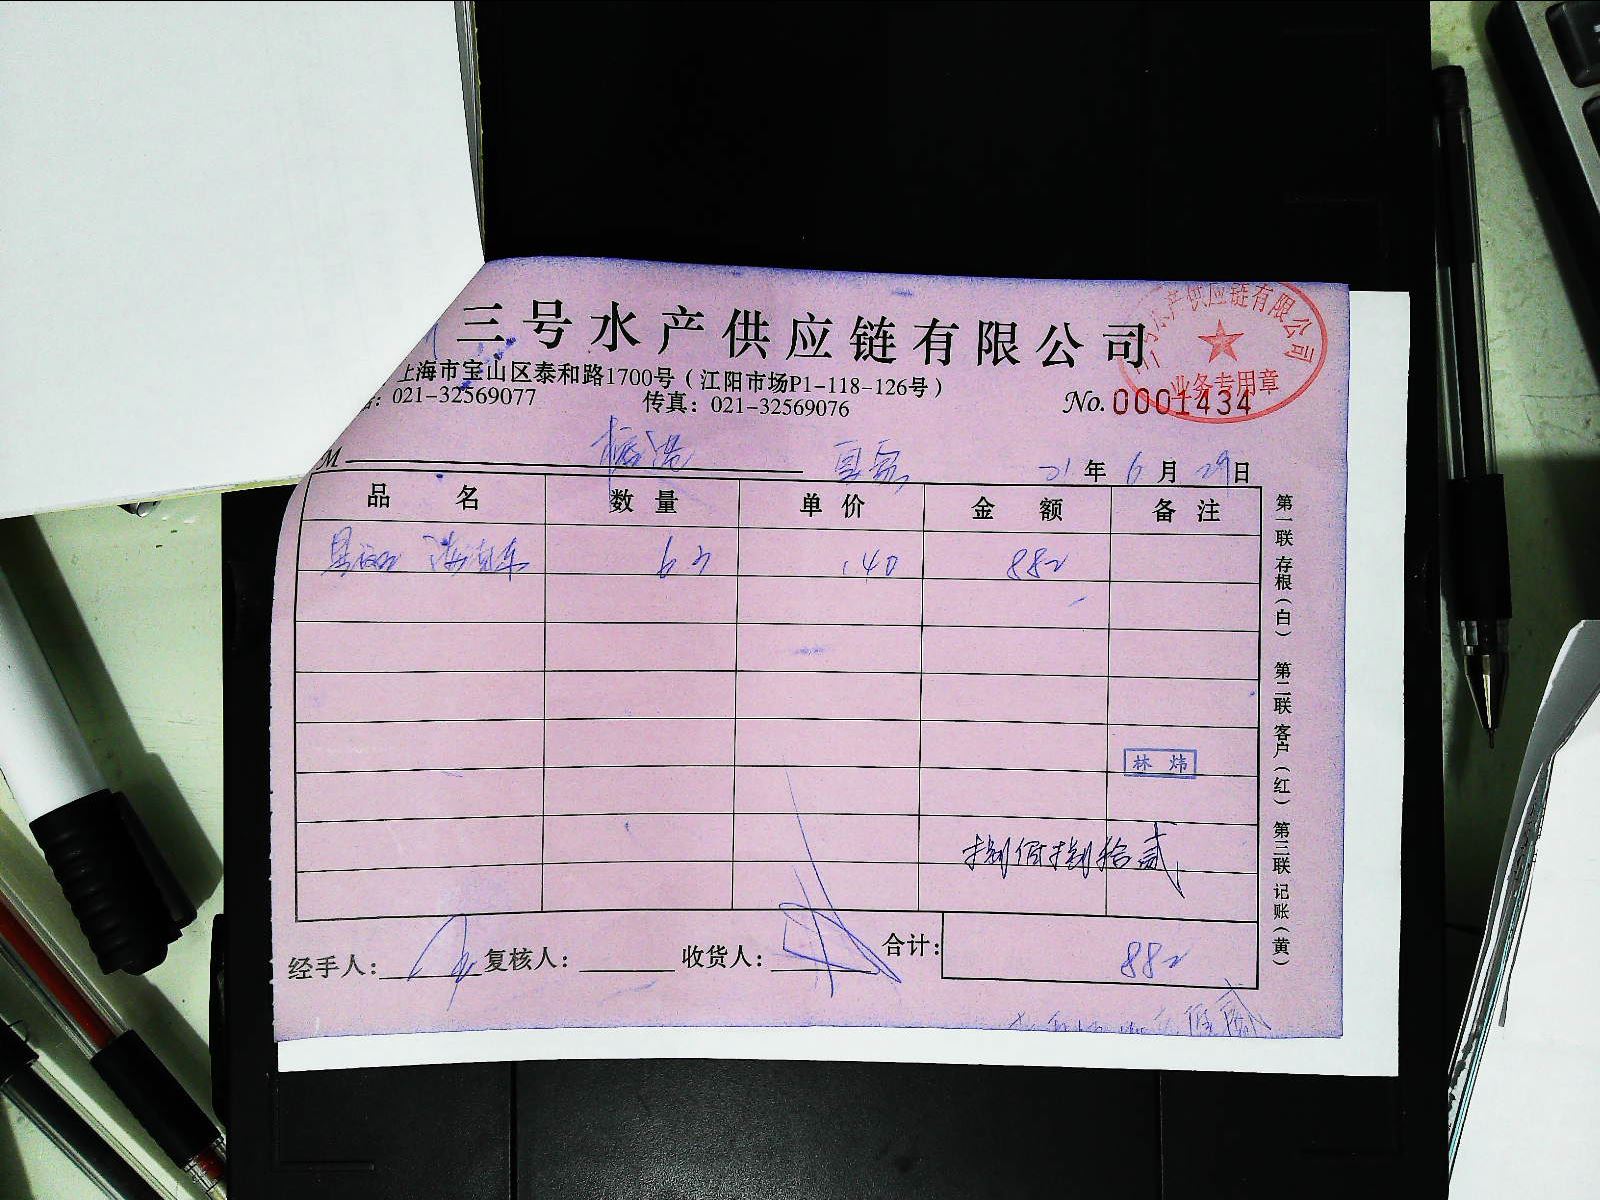 三号水产供应链有限公司
上海市宝山区泰和路1700号（江阳市场P1-118-126号）
021-32569077 传真：021-32569076
No. 0001434
水产供应链有限公司
业务专用章
M
21年6月29日
品名 数量 单价 金额 备注
63 140 882
林炜
捌佰捌拾贰
经手人： 复核人： 收货人： 合计： 882
第一联存根（白） 第二联客户（红） 第三联记账（黄）